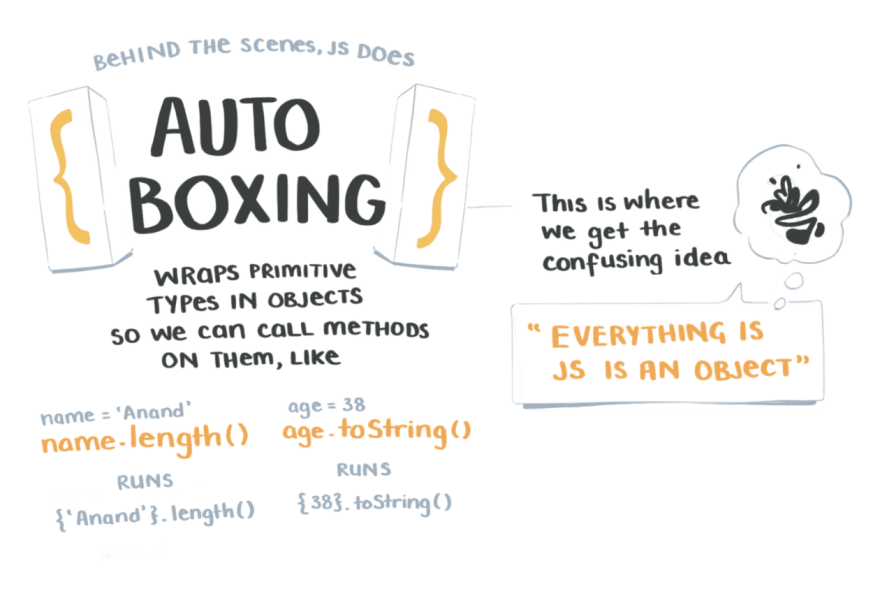 BeHIND THe Scenes, JS DOes
{ }
AUTO
BOXING
WRaPS PRIMITIVe
TYPes IN OBJecTS
SO We can caLL meTHODS
ON THem, LIKe
name = 'Anand'
name.length()
RUNS
{'Anand'}.length()
age = 38
age.toString()
RUNS
{38}.toString()
This is where
we get the
confusing idea
“ EVERYTHING IS
JS IS AN OBJecT”